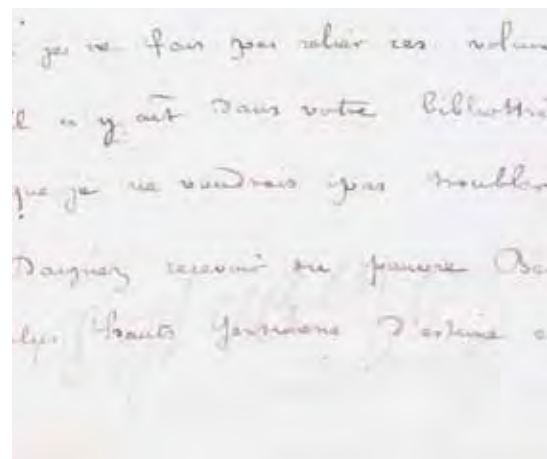 je ne fais pas relier ces volum
il n'y ait dans votre biblioth
que je ne voudrais pas troubler
Daignez recevoir du pauvre
plus hauts d'estime